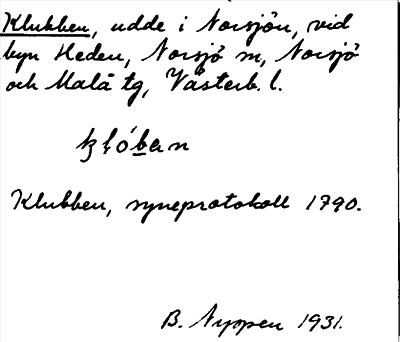 Klubben, udde i Norsjön, vid
byn Heden, Norsjö sn, Norsjö
och Malå tg, Västerb. l.
kḷóban
Klubben, syneprotokoll 1790.
B. Nyppen 1931.